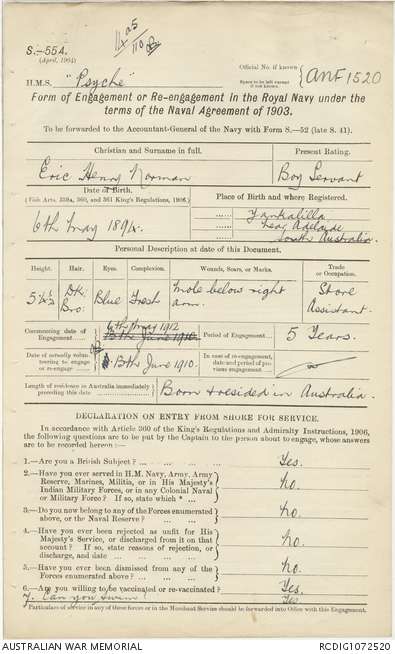 S.—55A.
(April, 1904)
110
Official No. if known
ANF 1520
Space to be left vacant if not known.
H.M.S. "Psyche"
Form of Engagement or Re-engagement in the Royal Navy under the
terms of the Naval Agreement of 1903.
To be forwarded to the Accountant-General of the Navy with Form S.—52 (late S. 41).
Christian and Surname in full.
Present Rating.
Eric Henry Norman
Boy Servant
Date of Birth.
(Vide Arts. 359a, 360, and 361 King's Regulations, 1906.)
Place of Birth and where Registered.
6th May 1894.
Yankalilla
near Adelaide
South Australia.
Personal Description at date of this Document.
Height. Hair. Eyes. Complexion. Wounds, Scars, or Marks. Trade or Occupation.
Dk Bro: Blue Fresh mole below right arm. Store Assistant.
Commencing date of Engagement
6th May 1912
13th June 1910
Period of Engagement
5 Years.
Date of actually volunteering to engage or re-engage
13th June 1910.
In case of re-engagement, date and period of previous engagement
Length of residence in Australia immediately preceding this date
Born & resided in Australia.
DECLARATION ON ENTRY FROM SHORE FOR SERVICE.
In accordance with Article 360 of the King's Regulations and Admiralty Instructions, 1906,
the following questions are to be put by the Captain to the person about to engage, whose answers
are to be recorded hereon:—
1.—Are you a British Subject? ... Yes.
2.—Have you ever served in H.M. Navy, Army, Army
Reserve, Marines, Militia, or in His Majesty's
Indian Military Forces, or in any Colonial Naval
or Military Force? If so, state which * ... No.
3.—Do you now belong to any of the Forces enumerated
above, or the Naval Reserve? ... No.
4.—Have you ever been rejected as unfit for His
Majesty's Service, or discharged from it on that
account? If so, state reasons of rejection, or
discharge, and date ... No.
5.—Have you ever been dismissed from any of the
Forces enumerated above? ... No.
6.—Are you willing to be vaccinated or re-vaccinated? Yes.
7. Can you swim? Yes
* Particulars of service in any of these forces or in the Merchant Service should be forwarded into Office with this Engagement.
AUSTRALIAN WAR MEMORIAL
RCDIG1072520